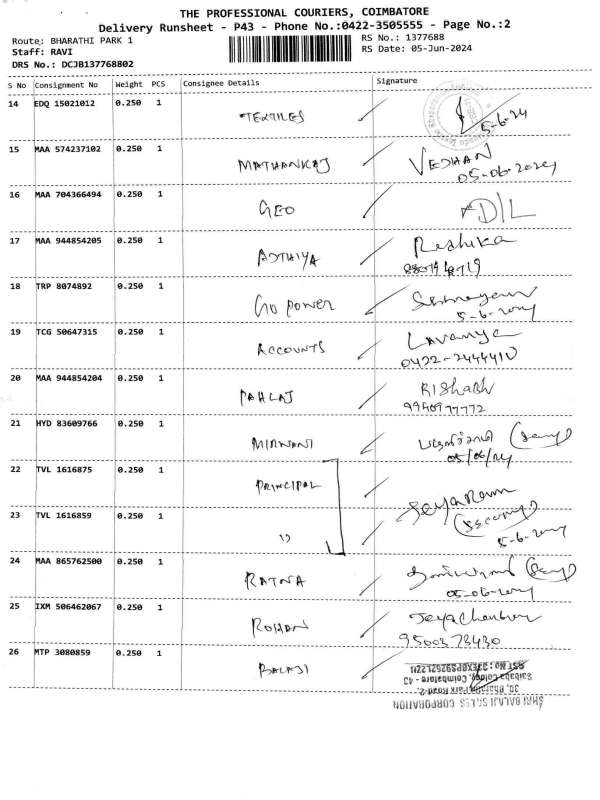 THE PROFESSIONAL COURIERS, COIMBATORE
Delivery Runsheet - P43 - Phone No.:0422-3505555 - Page No.:2
Route: BHARATHI PARK 1
RS No.: 1377688
Staff: RAVI
RS Date: 05-Jun-2024
DRS No.: DCJB137768802
S No Consignment No Weight PCS Consignee Details Signature
14 EDQ 15021012 0.250 1 TEXTILES 5-6-24
15 MAA 574237102 0.250 1 MATHANRAJ VEDHAN
05-06-2024
16 MAA 704366494 0.250 1 GEO ADIL
17 MAA 944854205 0.250 1 ADTHIYA Reshika
18 TRP 8074892 0.250 1 GO POWER
5-6-2024
19 TCG 50647315 0.250 1 ACCOUNTS Lavanya
0422-2444410
20 MAA 944854204 0.250 1 PAHLAJ RIShabh
21 HYD 83609766 0.250 1 MIRWANI
05/06/24
22 TVL 1616875 0.250 1 PRINCIPAL JeyaRam
23 TVL 1616859 0.250 1 "
5-6-2024
24 MAA 865762500 0.250 1 RATNA
05-06-2024
25 IXM 506462067 0.250 1 ROHAN Jeya
9500378430
26 MTP 3080859 0.250 1 BALAJI
SHRI BALAJI SALES CORPORATION
30, Bharathi Park Road, 2,
Saibaba Colony, Coimbatore - 43